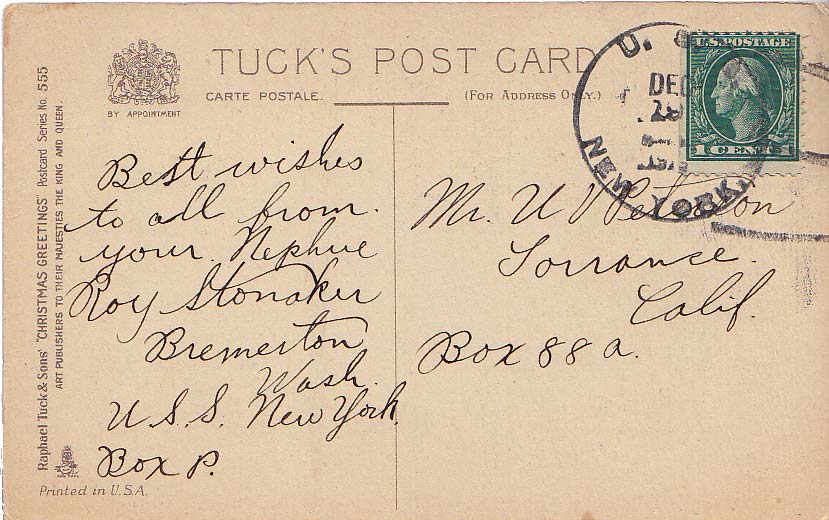 TUCK'S POST CARD
CARTE POSTALE.
(FOR ADDRESS ONLY.)
BY APPOINTMENT
Raphael Tuck & Sons' "CHRISTMAS GREETINGS" Postcard Series No. 555
ART PUBLISHERS TO THEIR MAJESTIES THE KING AND QUEEN.
Best wishes
to all from.
your Nephue
Roy Stonaker
Bremerton
Wash.
U.S.S. New York.
Box P.
Printed in U.S.A.
U. S.
DEC
NEW YORK.
U.S. POSTAGE
1 CENT 1
Mr. U Peterson
Torrance.
Calif.
Box 88 a.